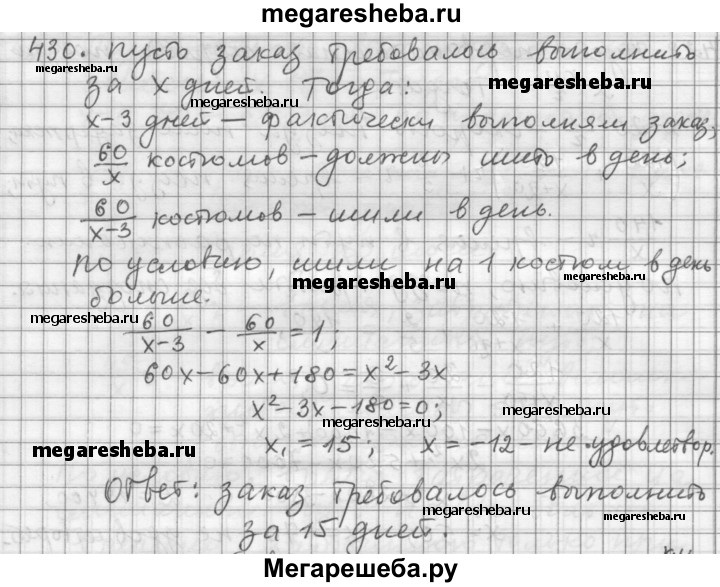 megaresheba.ru
430. Пусть заказ требовалось выполнить
megaresheba.ru
за x дней. Тогда:
megaresheba.ru
megaresheba.ru
x-3 дней — фактически выполняли заказ;
60/x костюмов – должны шить в день;
60/(x-3) костюмов – шили в день.
По условию, шили на 1 костюм в день
megaresheba.ru
больше.
megaresheba.ru
60/(x-3) - 60/x = 1;
megaresheba.ru
60x-60x+180=x²-3x
x²-3x-180=0;
megaresheba.ru
megaresheba.ru
megaresheba.ru
x₁=15; x=-12- не удовлетвор.
Ответ: заказ требовалось выполнить
megaresheba.ru
за 15 дней.
Мегарешеба.ру